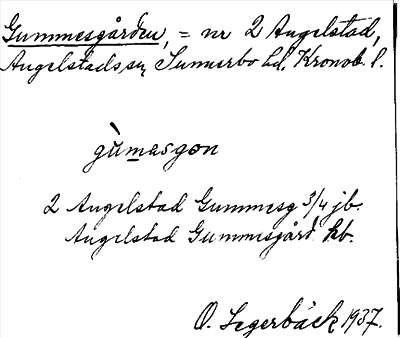 Gummesgården, = nr 2 Angelstad,
Angelstads sn, Sunnerbo hd, Kronob. l.
gùmasgon
2 Angelstad Gummesg 3/4 jb.
Angelstad Gummesgård kb.
O. Segerbäck 1937.